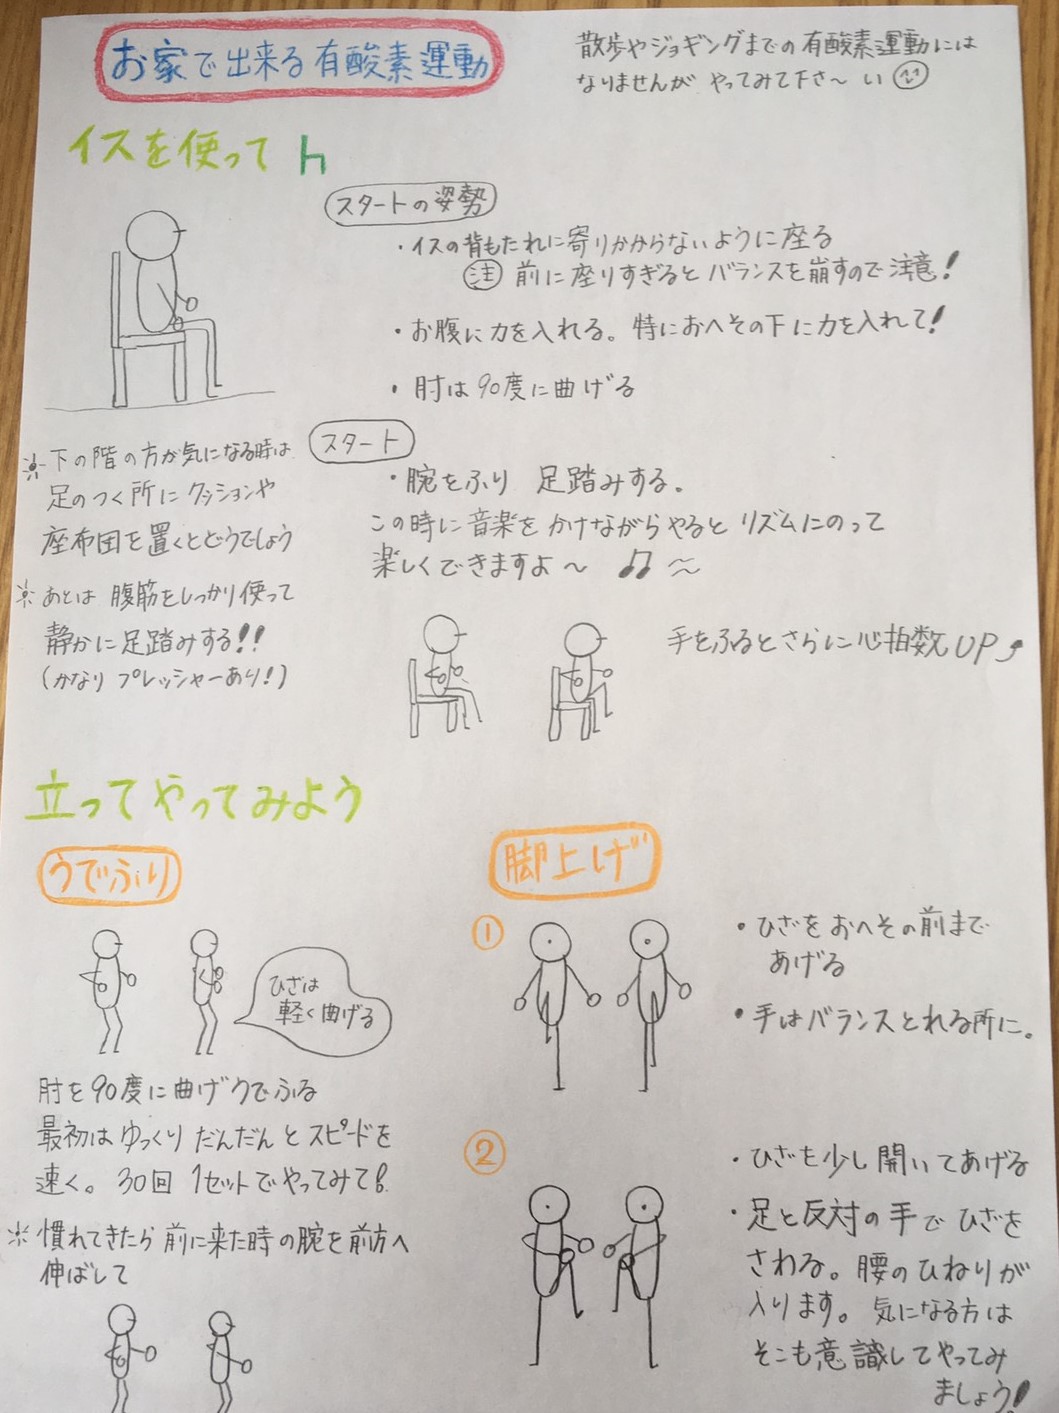 お家で出来る有酸素運動
散歩やジョギングまでの有酸素運動には
なりませんが やってみて下さ〜い
イスを使って
スタートの姿勢
・イスの背もたれに寄りかからないように座る
注 前に座りすぎるとバランスを崩すので注意!
・お腹に力を入れる。特におへその下に力を入れて!
・肘は90度に曲げる
※下の階の方が気になる時は
足のつく所にクッションや
座布団を置くとどうでしょう
※あとは腹筋をしっかり使って
静かに足踏みする!!
(かなりプレッシャーあり!)
スタート
・腕をふり 足踏みする。
この時に音楽をかけながらやるとリズムにのって
楽しくできますよ〜 ♫〜
手をふるとさらに心拍数UP
立ってやってみよう
うでふり
ひざは
軽く曲げる
肘を90度に曲げウでふる
最初はゆっくりだんだんとスピードを
速く。30回1セットでやってみて!
※慣れてきたら前に来た時の腕を前方へ
伸ばして
脚上げ
①
・ひざをおへその前まで
あげる
・手はバランスとれる所に。
②
・ひざを少し開いてあげる
・足と反対の手でひざを
さわる。腰のひねりが
入ります。気になる方は
そこも意識してやってみ
ましょう!